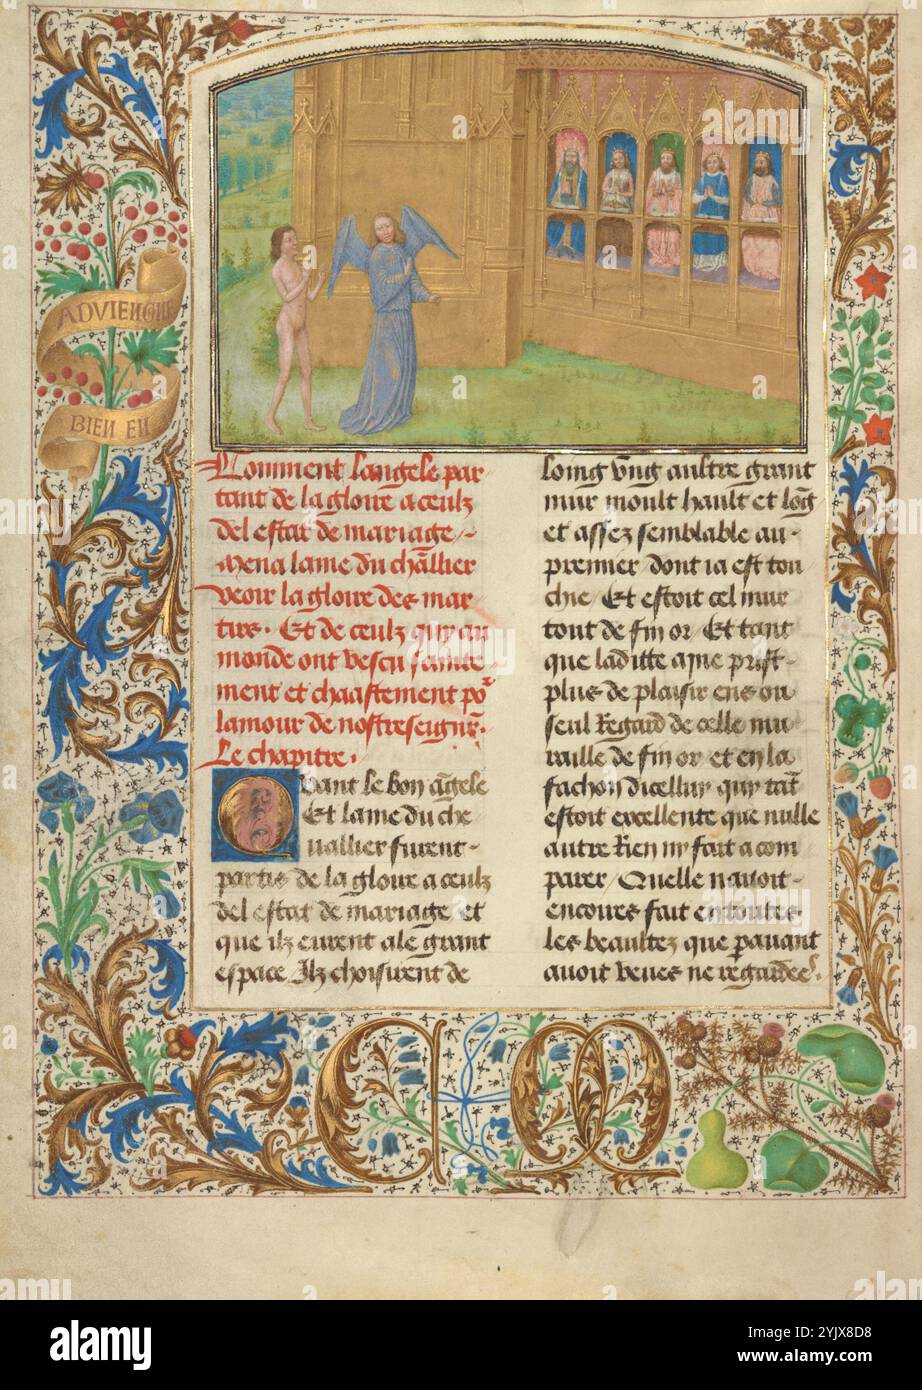 ADVIENGNE
BIEN EN
Comment langele par-
tant de la gloire a ceulz
del estat de mariage /-
mena lame du chƚlier
veoir la gloire des mar-
tirs. Et de ceulz quy au
monde ont vescu sainte-
ment et chaastement po᷑
lamour de nostreseigne᷑.
Le chapitre.
Quant le bon ãgele
Et lame du che
uallier furent-
partis de la gloire a ceulz
del estat de mariage et
que ilz eurent ale grant
espace Ilz choisirent de
loing vng aultre grant
mur moult hault et log̃
et assez semblable au-
premier dont ia est tou
chie / Et estoit cel mur
tout de fin or / Et tant
que laditte ame prist-
plus de plaisir en son
seul Regard de celle mu
raille de fin or et en la
fachon dicelluy quy tãt
estoit excellente que nulle
autre Rien ny fait a com
parer / Quelle nauoit-
encores fait en toutes
les beaultez que pauant
auoit veues ne regardees.
C M
alamy
Image ID: 2YJX8D8
www.alamy.com